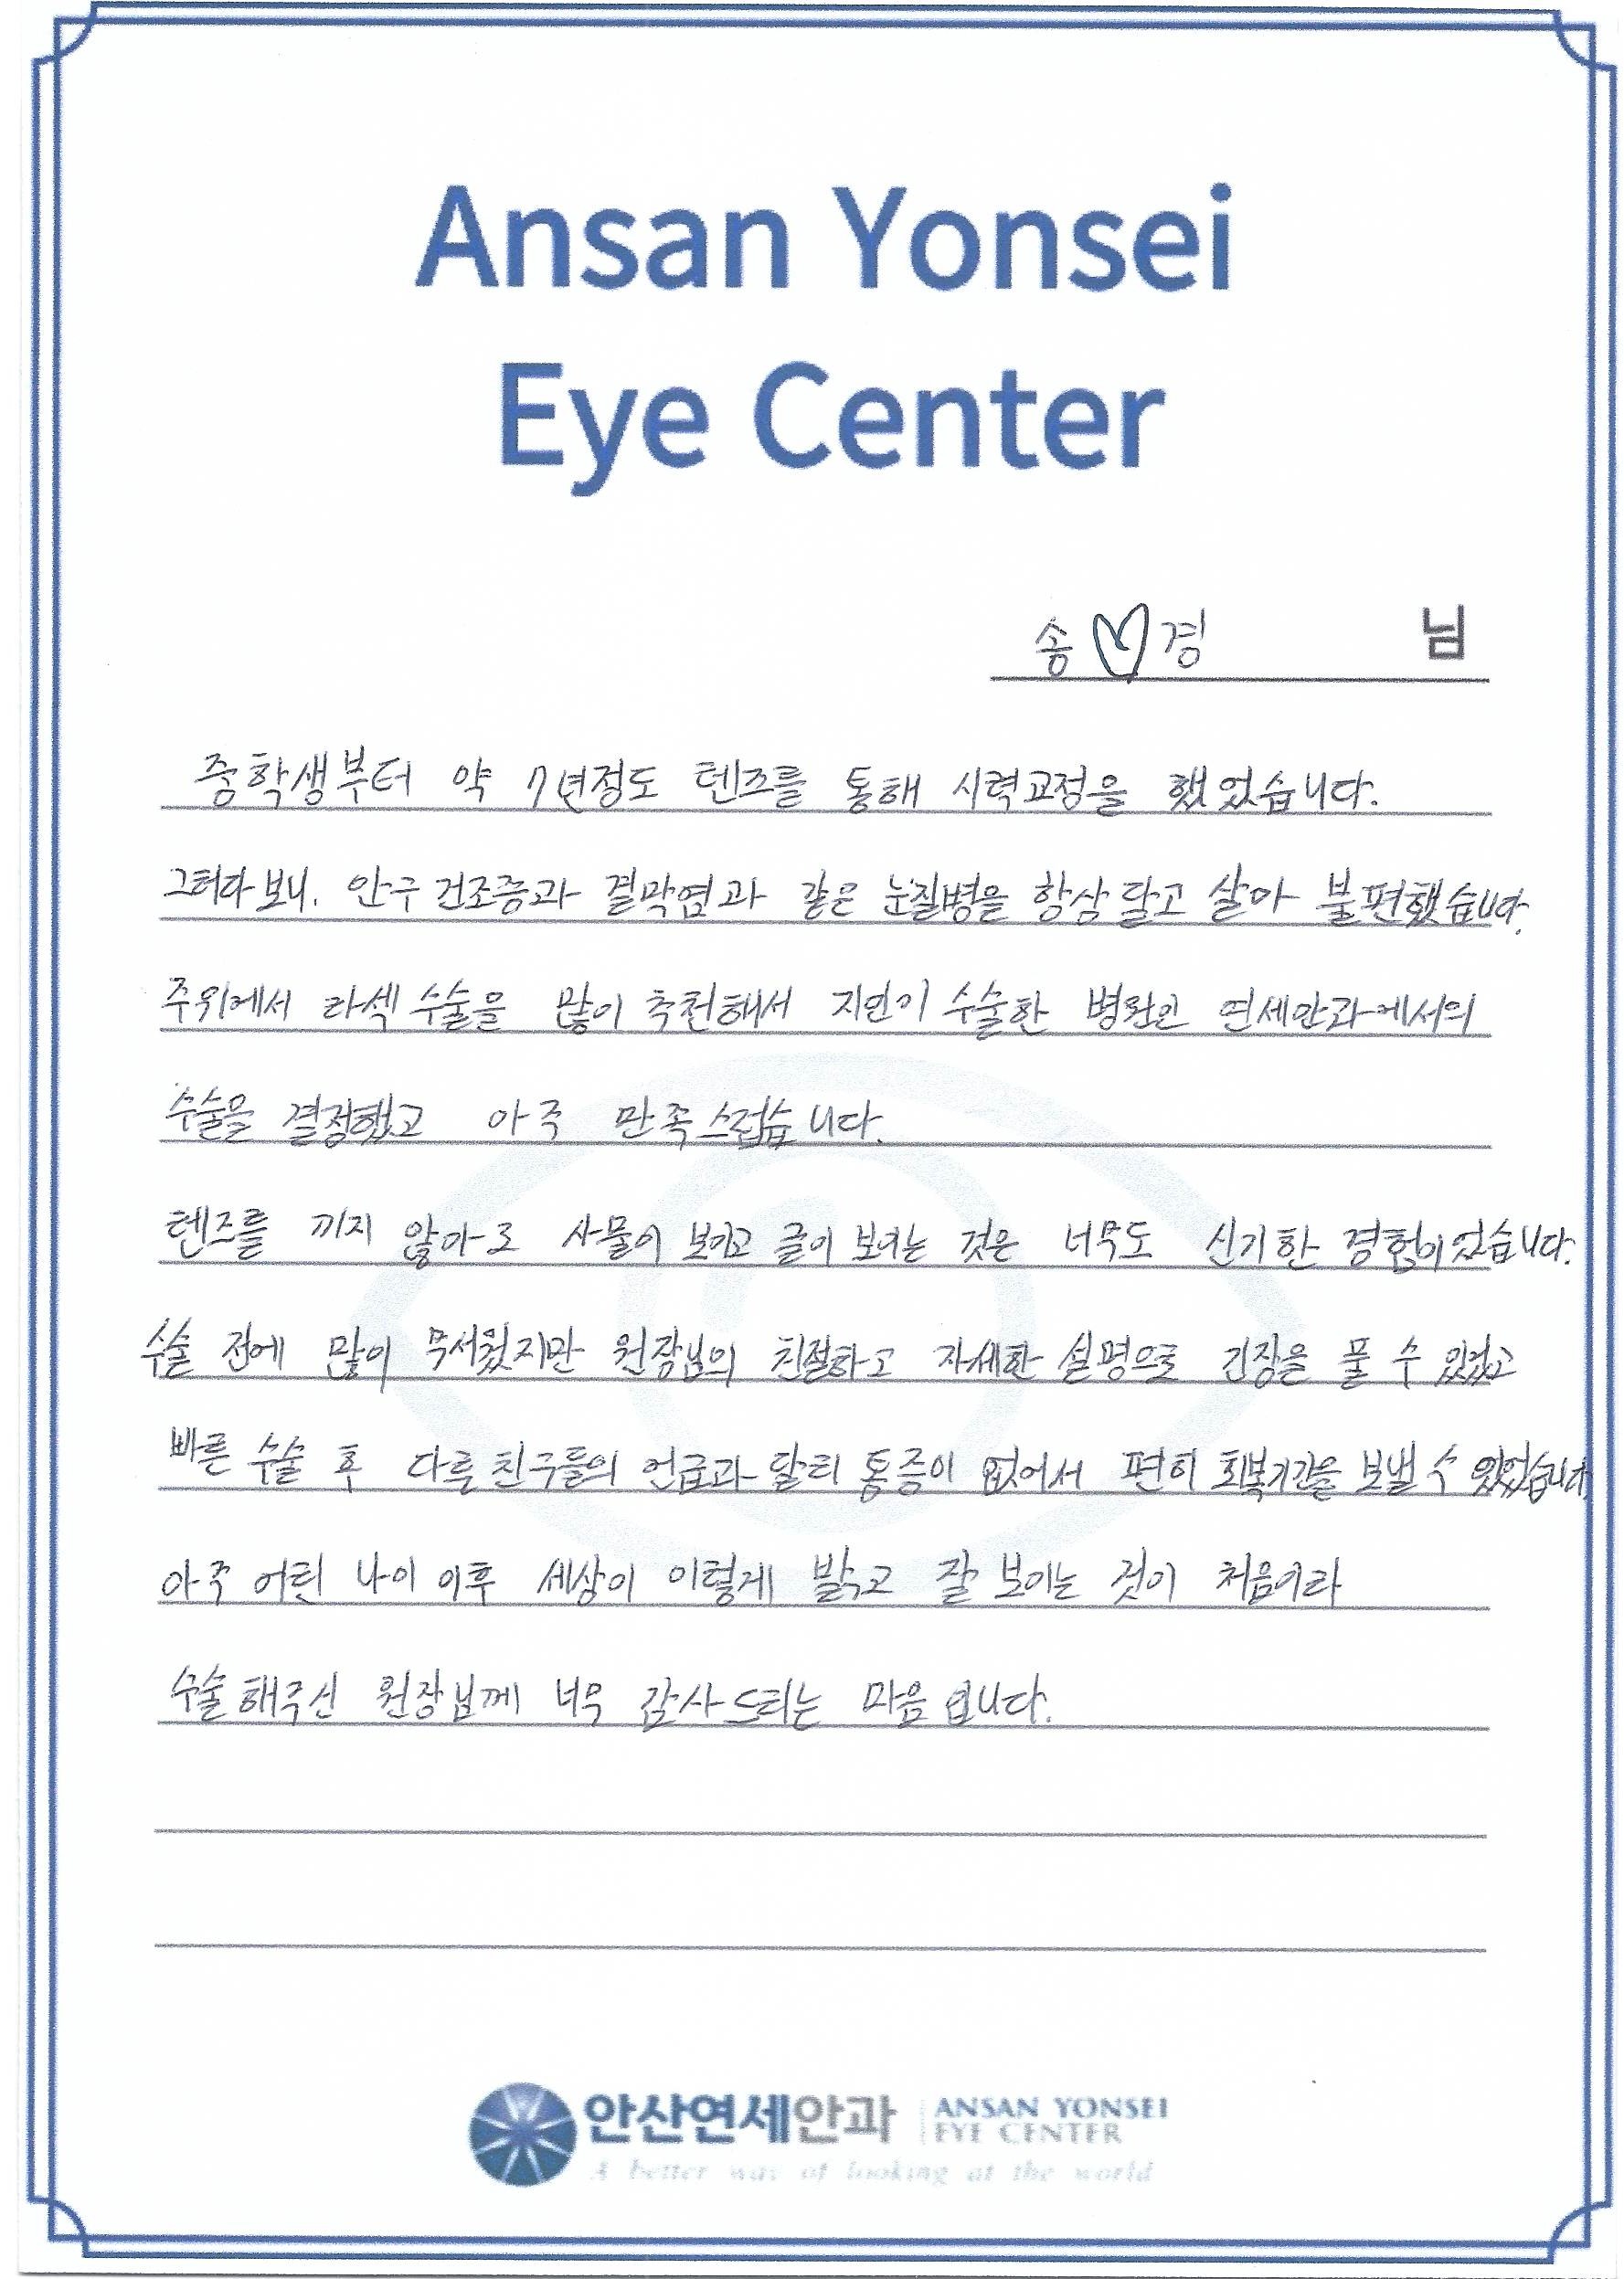 Ansan Yonsei
Eye Center
송♡경 님
중학생부터 약 7년정도 렌즈를 통해 시력교정을 했었습니다.
그러다 보니, 안구 건조증과 결막염과 같은 눈질병을 항상 달고 살아 불편했습니다.
주위에서 라섹 수술을 많이 추천해서 지인이 수술한 병원인 연세안과에서의
수술을 결정했고 아주 만족스럽습니다.
렌즈를 끼지 않아도 사물이 보이고 글이 보이는 것은 너무도 신기한 경험이었습니다.
수술 전에 많이 무서웠지만 원장님의 친절하고 자세한 설명으로 긴장을 풀 수 있었고
빠른 수술 후 다른 친구들의 언급과 달리 통증이 없어서 편히 회복기간을 보낼 수 있었습니다.
아주 어린 나이 이후 세상이 이렇게 밝고 잘 보이는 것이 처음이라
수술해주신 원장님께 너무 감사드리는 마음입니다.
안산연세안과 ANSAN YONSEI
EYE CENTER
A better way of looking at the world